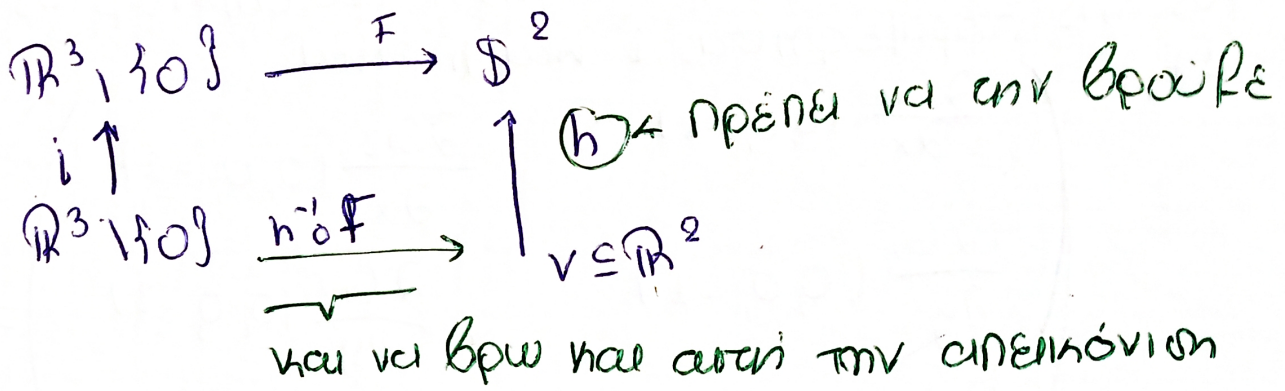 ℝ³\{0} F→ 𝕊²
i ↑ ↑ h ← πρέπει να την βρούμε
ℝ³\{0} h⁻¹∘F→ V⊆ℝ²
και να βρω και αυτή την απεικόνιση